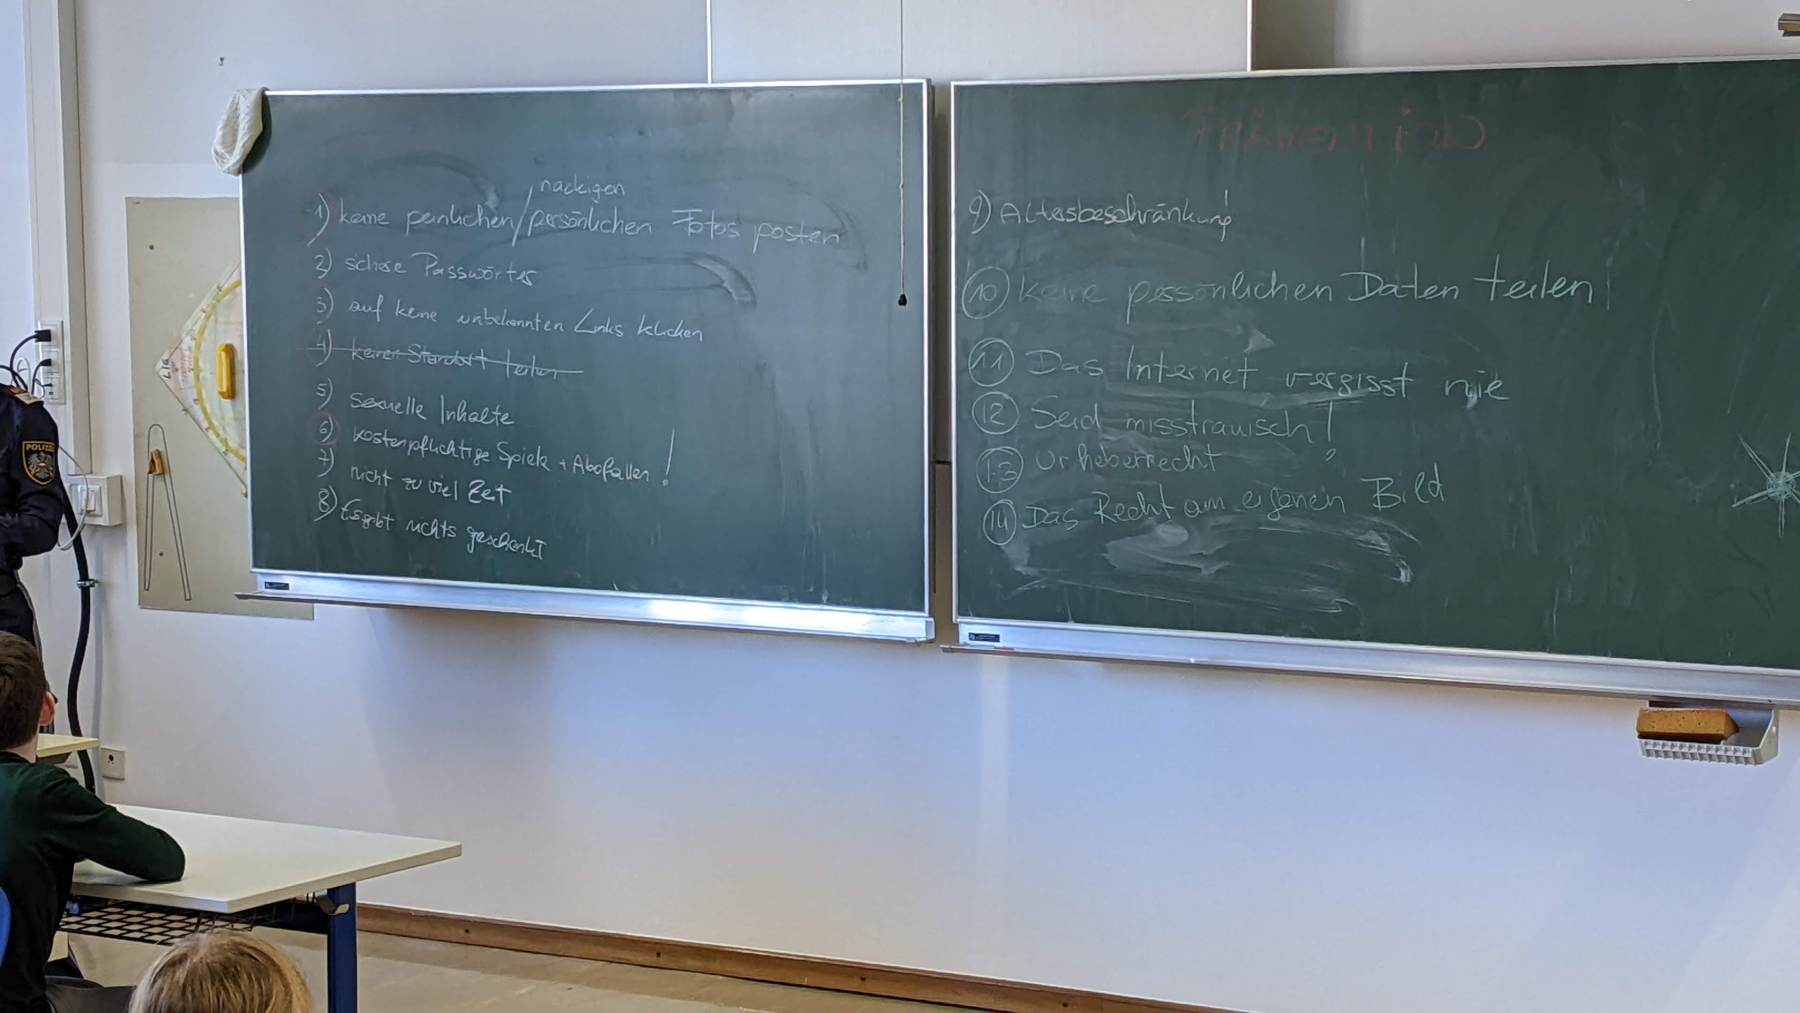 nackigen
1) keine peinlichen/persönlichen Fotos posten
2) sichere Passwörter
3) auf keine unbekannten Links klicken
4) keinen Standort teilen
5) sexuelle Inhalte
6) kostenpflichtige Spiele + Abofallen!
7) nicht zu viel Zeit
8) Es gibt nichts geschenkt
9) Altersbeschränkung!
10 Keine persönlichen Daten teilen!
11 Das Internet vergisst nie
12 Seid misstrauisch!
13 Urheberrecht
14 Das Recht am eigenen Bild
POLIZEI